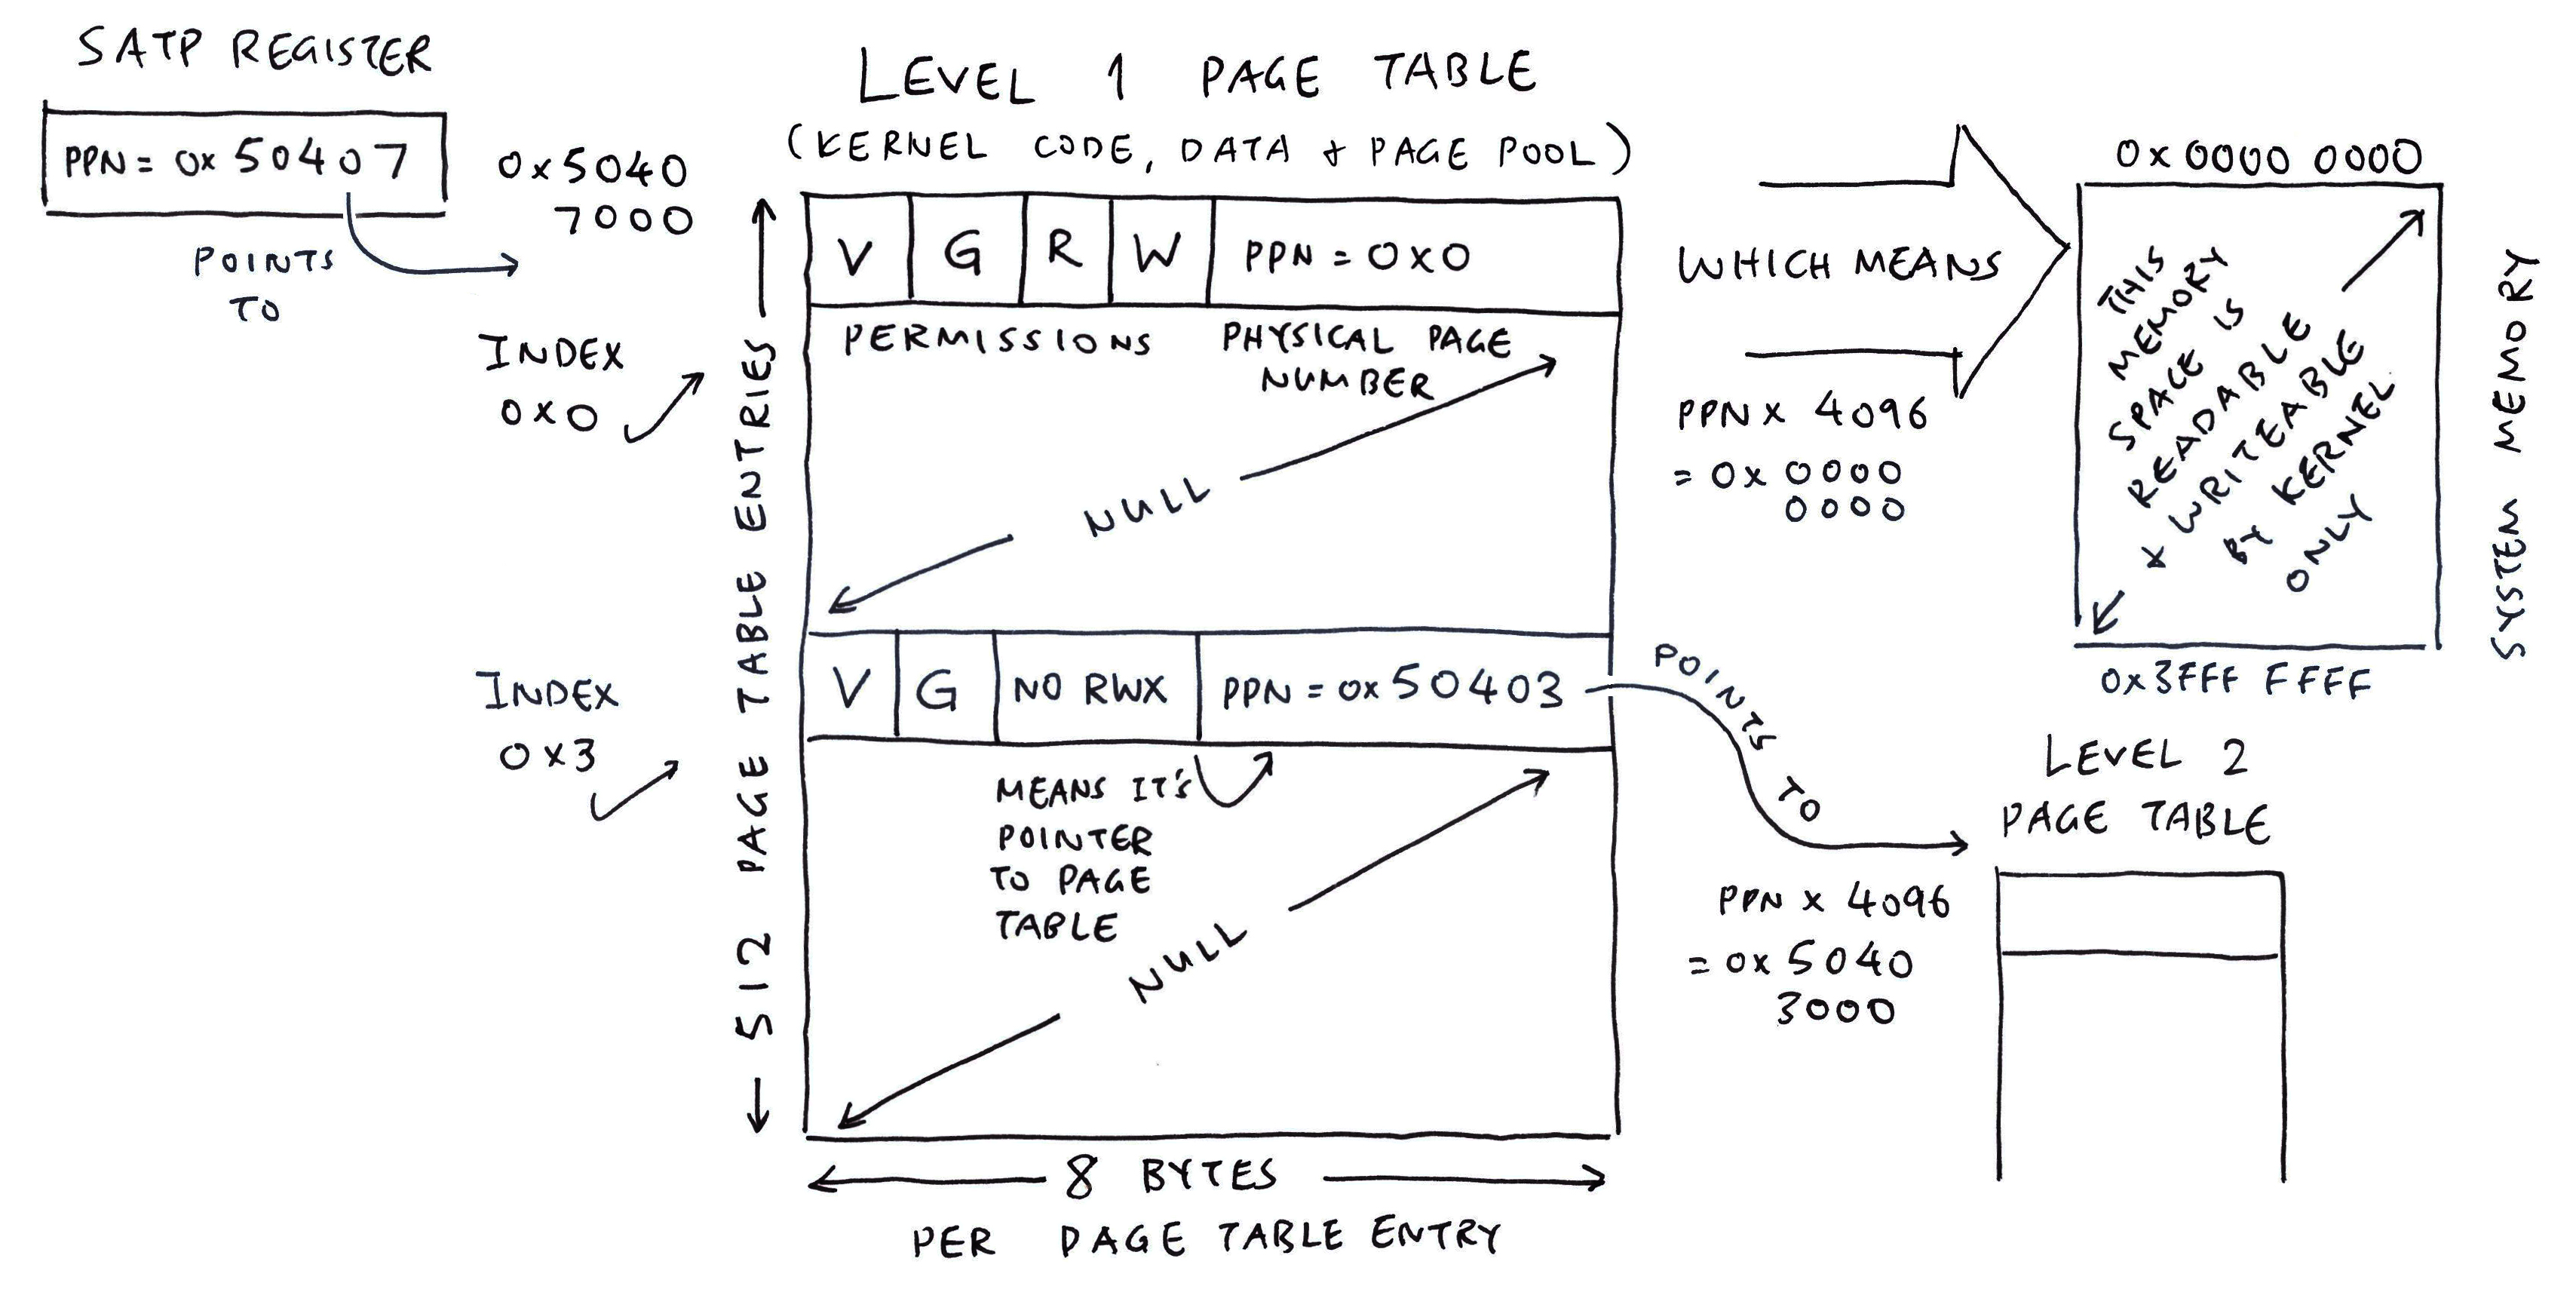 SATP REGISTER
PPN = 0x 50407
POINTS
TO
0x5040
7000
INDEX
0x0
INDEX
0x3
LEVEL 1 PAGE TABLE
(KERNEL CODE, DATA + PAGE POOL)
512 PAGE TABLE ENTRIES
V G R W PPN = 0x0
PERMISSIONS PHYSICAL PAGE
NUMBER
NULL
V G NO RWX PPN = 0x50403
MEANS IT'S
POINTER
TO PAGE
TABLE
NULL
8 BYTES
PER PAGE TABLE ENTRY
WHICH MEANS
PPN x 4096
= 0x 0000
0000
0x 0000 0000
THIS
MEMORY
SPACE IS
READABLE
+ WRITEABLE
BY KERNEL
ONLY
0x3FFF FFFF
SYSTEM MEMORY
POINTS TO
PPN x 4096
= 0x 5040
3000
LEVEL 2
PAGE TABLE